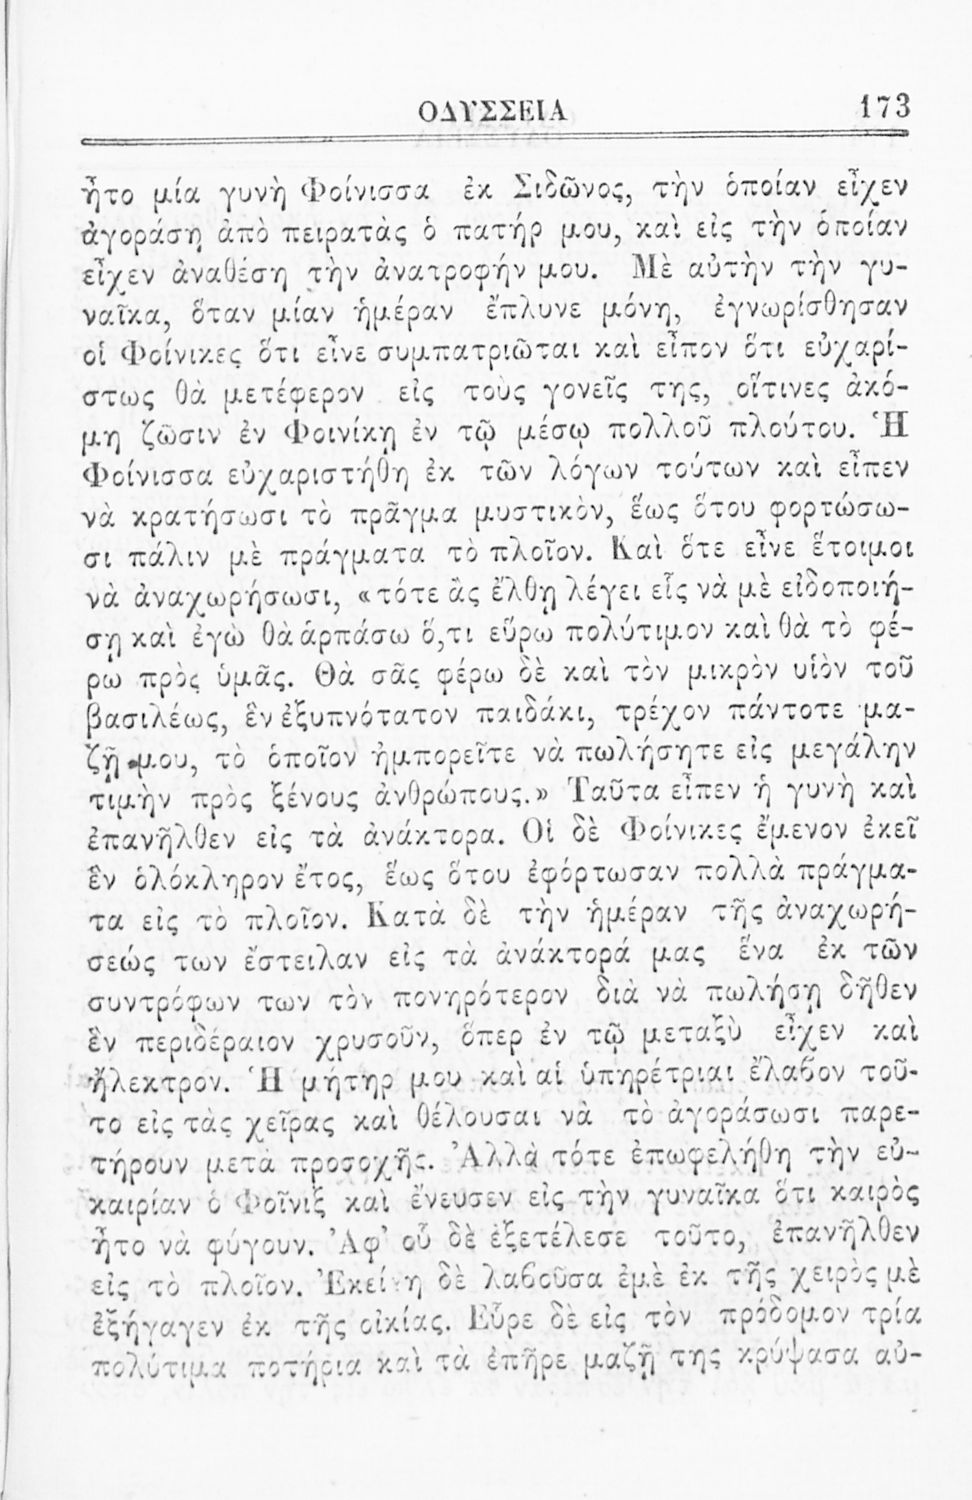 ΟΔΥΣΣΕΙΑ 173
ἦτο μία γυνὴ Φοίνισσα ἐκ Σιδῶνος, τὴν ὁποίαν εἶχεν
ἀγοράσῃ ἀπὸ πειρατὰς ὁ πατήρ μου, καὶ εἰς τὴν ὁποίαν
εἶχεν ἀναθέσῃ τὴν ἀνατροφήν μου. Μὲ αὐτὴν τὴν γυ-
ναῖκα, ὅταν μίαν ἡμέραν ἔπλυνε μόνη, ἐγνωρίσθησαν
οἱ Φοίνικες ὅτι εἶνε συμπατριῶται καὶ εἶπον ὅτι εὐχαρί-
στως θὰ μετέφερον εἰς τοὺς γονεῖς της, οἵτινες ἀκό-
μη ζῶσιν ἐν Φοινίκῃ ἐν τῷ μέσῳ πολλοῦ πλούτου. Ἡ
Φοίνισσα εὐχαριστήθη ἐκ τῶν λόγων τούτων καὶ εἶπεν
νὰ κρατήσωσι τὸ πρᾶγμα μυστικὸν, ἕως ὅτου φορτώσω-
σι πάλιν μὲ πράγματα τὸ πλοῖον. Καὶ ὅτε εἶνε ἕτοιμοι
νὰ ἀναχωρήσωσι, «τότε ἂς ἔλθῃ λέγει εἷς νὰ μὲ εἰδοποιή-
σῃ καὶ ἐγὼ θὰ ἁρπάσω ὅ,τι εὕρω πολύτιμον καὶ θὰ τὸ φέ-
ρω πρὸς ὑμᾶς. Θὰ σᾶς φέρω δὲ καὶ τὸν μικρὸν υἱὸν τοῦ
βασιλέως, ἓν ἐξυπνότατον παιδάκι, τρέχον πάντοτε μα-
ζῇ μου, τὸ ὁποῖον ἠμπορεῖτε νὰ πωλήσητε εἰς μεγάλην
τιμὴν πρὸς ξένους ἀνθρώπους.» Ταῦτα εἶπεν ἡ γυνὴ καὶ
ἐπανῆλθεν εἰς τὰ ἀνάκτορα. Οἱ δὲ Φοίνικες ἔμενον ἐκεῖ
ἓν ὁλόκληρον ἔτος, ἕως ὅτου ἐφόρτωσαν πολλὰ πράγμα-
τα εἰς τὸ πλοῖον. Κατὰ δὲ τὴν ἡμέραν τῆς ἀναχωρή-
σεώς των ἔστειλαν εἰς τὰ ἀνάκτορά μας ἕνα ἐκ τῶν
συντρόφων των τὸν πονηρότερον διὰ νὰ πωλήσῃ δῆθεν
ἓν περιδέραιον χρυσοῦν, ὅπερ ἐν τῷ μεταξὺ εἶχεν καὶ
ἤλεκτρον. Ἡ μήτηρ μου καὶ αἱ ὑπηρέτριαι ἔλαβον τοῦ-
το εἰς τὰς χεῖρας καὶ θέλουσαι νὰ τὸ ἀγοράσωσι παρε-
τήρουν μετὰ προσοχῆς. Ἀλλὰ τότε ἐπωφελήθη τὴν εὐ-
καιρίαν ὁ Φοῖνιξ καὶ ἔνευσεν εἰς τὴν γυναῖκα ὅτι καιρὸς
ἦτο νὰ φύγουν. Ἀφ' οὗ δὲ ἐξετέλεσε τοῦτο, ἐπανῆλθεν
εἰς τὸ πλοῖον. Ἐκείνη δὲ λαβοῦσα ἐμὲ ἐκ τῆς χειρὸς μὲ
ἐξήγαγεν ἐκ τῆς οἰκίας. Εὗρε δὲ εἰς τὸν πρόδομον τρία
πολύτιμα ποτήρια καὶ τὰ ἐπῆρε μαζῇ της κρύψασα αὐ-